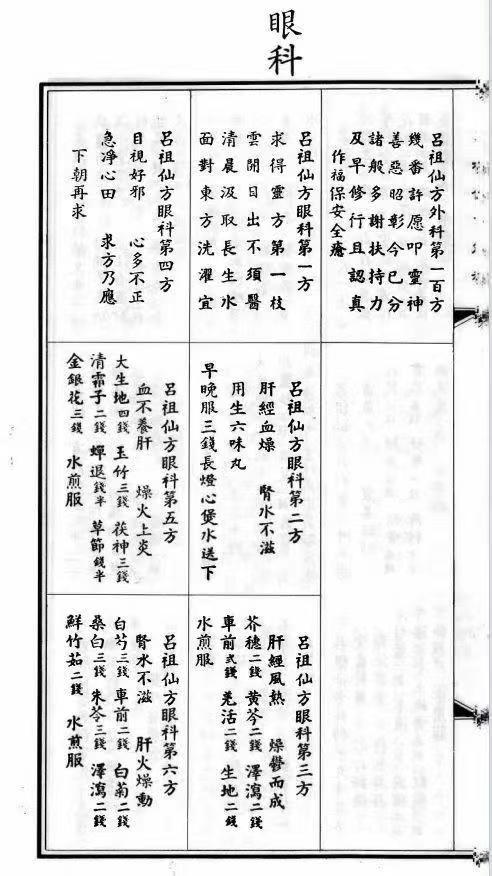 眼科
呂祖仙方外科第一百方
幾番許愿叩靈神
善惡昭彰今已分
諸般多謝扶持力
及早修行且認真
作福保安全瘡
呂祖仙方眼科第一方
求得靈方第一枝
雲開日出不須醫
清晨汲取長生水
面對東方洗濯宜
呂祖仙方眼科第二方
肝經血燥 腎水不滋
用生六味丸
早晚服三錢長燈心煲水送下
呂祖仙方眼科第三方
肝經風熱 燥鬱而成
芥穗二錢 黃芩二錢 澤瀉二錢
車前弍錢 羌活二錢 生地二錢
水煎服
呂祖仙方眼科第四方
目視好邪 心多不正
急淨心田 求方乃應
下朝再求
呂祖仙方眼科第五方
血不養肝 燥火上炎
大生地四錢 玉竹三錢 茯神三錢
清霜子二錢 蟬退錢半 草節錢半
金銀花三錢 水煎服
呂祖仙方眼科第六方
腎水不滋 肝火燥動
白芍三錢 車前二錢 白菊二錢
桑白三錢 朱苓三錢 澤瀉二錢
鮮竹茹二錢 水煎服